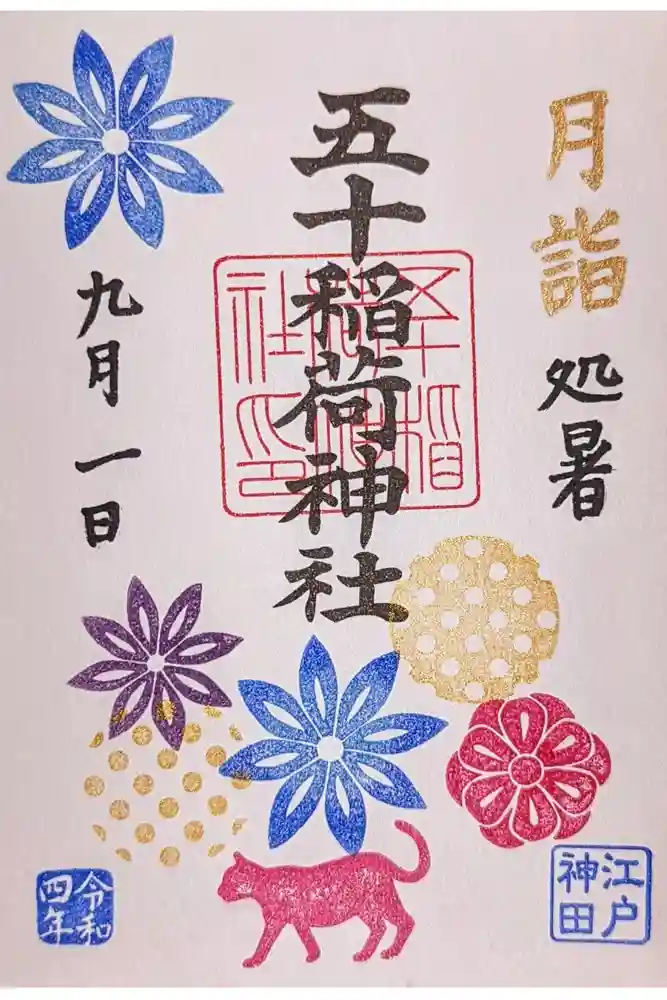 月詣
処暑
五十稲荷神社
五十稲荷神社印
九月一日
江戸
神田
令和
四年